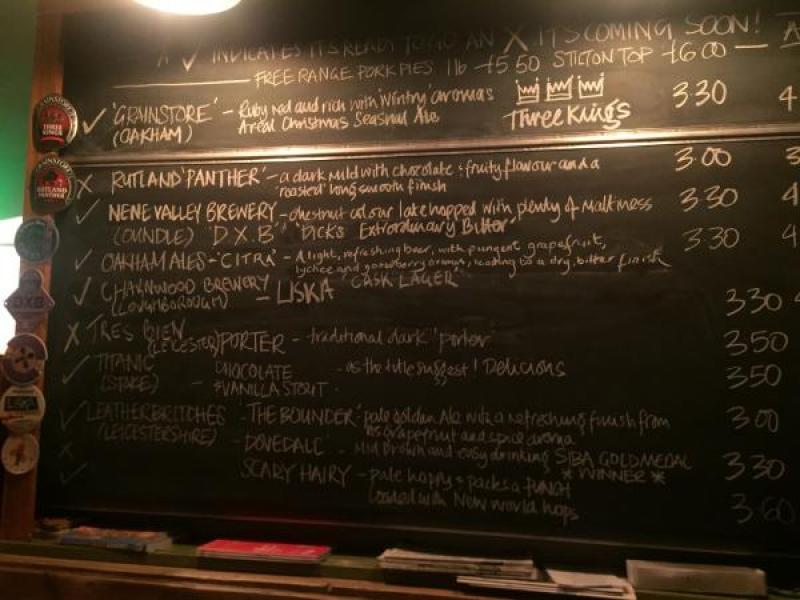 A ✓ INDICATES IT'S READY TO GO AN X IT'S COMING SOON!
FREE RANGE PORK PIES 1lb £5.50 STILTON TOP £6.00
✓ 'GRAINSTORE' - Ruby Red and rich with 'Wintry' aromas
(OAKHAM) A real Christmas Seasonal Ale
Three Kings 3.30 4
X RUTLAND 'PANTHER' - a dark mild with chocolate & fruity flavour and a 3.00 3
'roasted' long smooth finish
✓ NENE VALLEY BREWERY - chestnut colour late hopped with plenty of maltiness 3.30 4
(OUNDLE) 'D.X.B' 'DICK'S Extrordinary Bitter'
✓ OAKHAM ALES - 'CITRA' - A light, refreshing beer, with pungent grapefruit, 3.30 4
lychee and gooseberry aromas, leading to a dry, bitter finish
✓ CHARNWOOD BREWERY - LISKA 'CASK LAGER'
(LOUGHBOROUGH) 3.30 4
X TRES BIEN
(LEICESTER) PORTER - traditional dark 'porter' 3.50
✓ TITANIC CHOCOLATE - as the title suggest! Delicious 3.50
(STOKE) - & VANILLA STOUT.
✓ LEATHERBRITCHES - 'THE BOUNDER' pale golden Ale with a refreshing finish from 3.00
(LEICESTERSHIRE) its grapefruit and spice aroma
X - DOVEDALE - Mid Brown and easy drinking SIBA GOLD MEDAL 3.30
* WINNER *
✓ SCARY HAIRY - pale hoppy & packs a PUNCH
loaded with New World hops 3.60